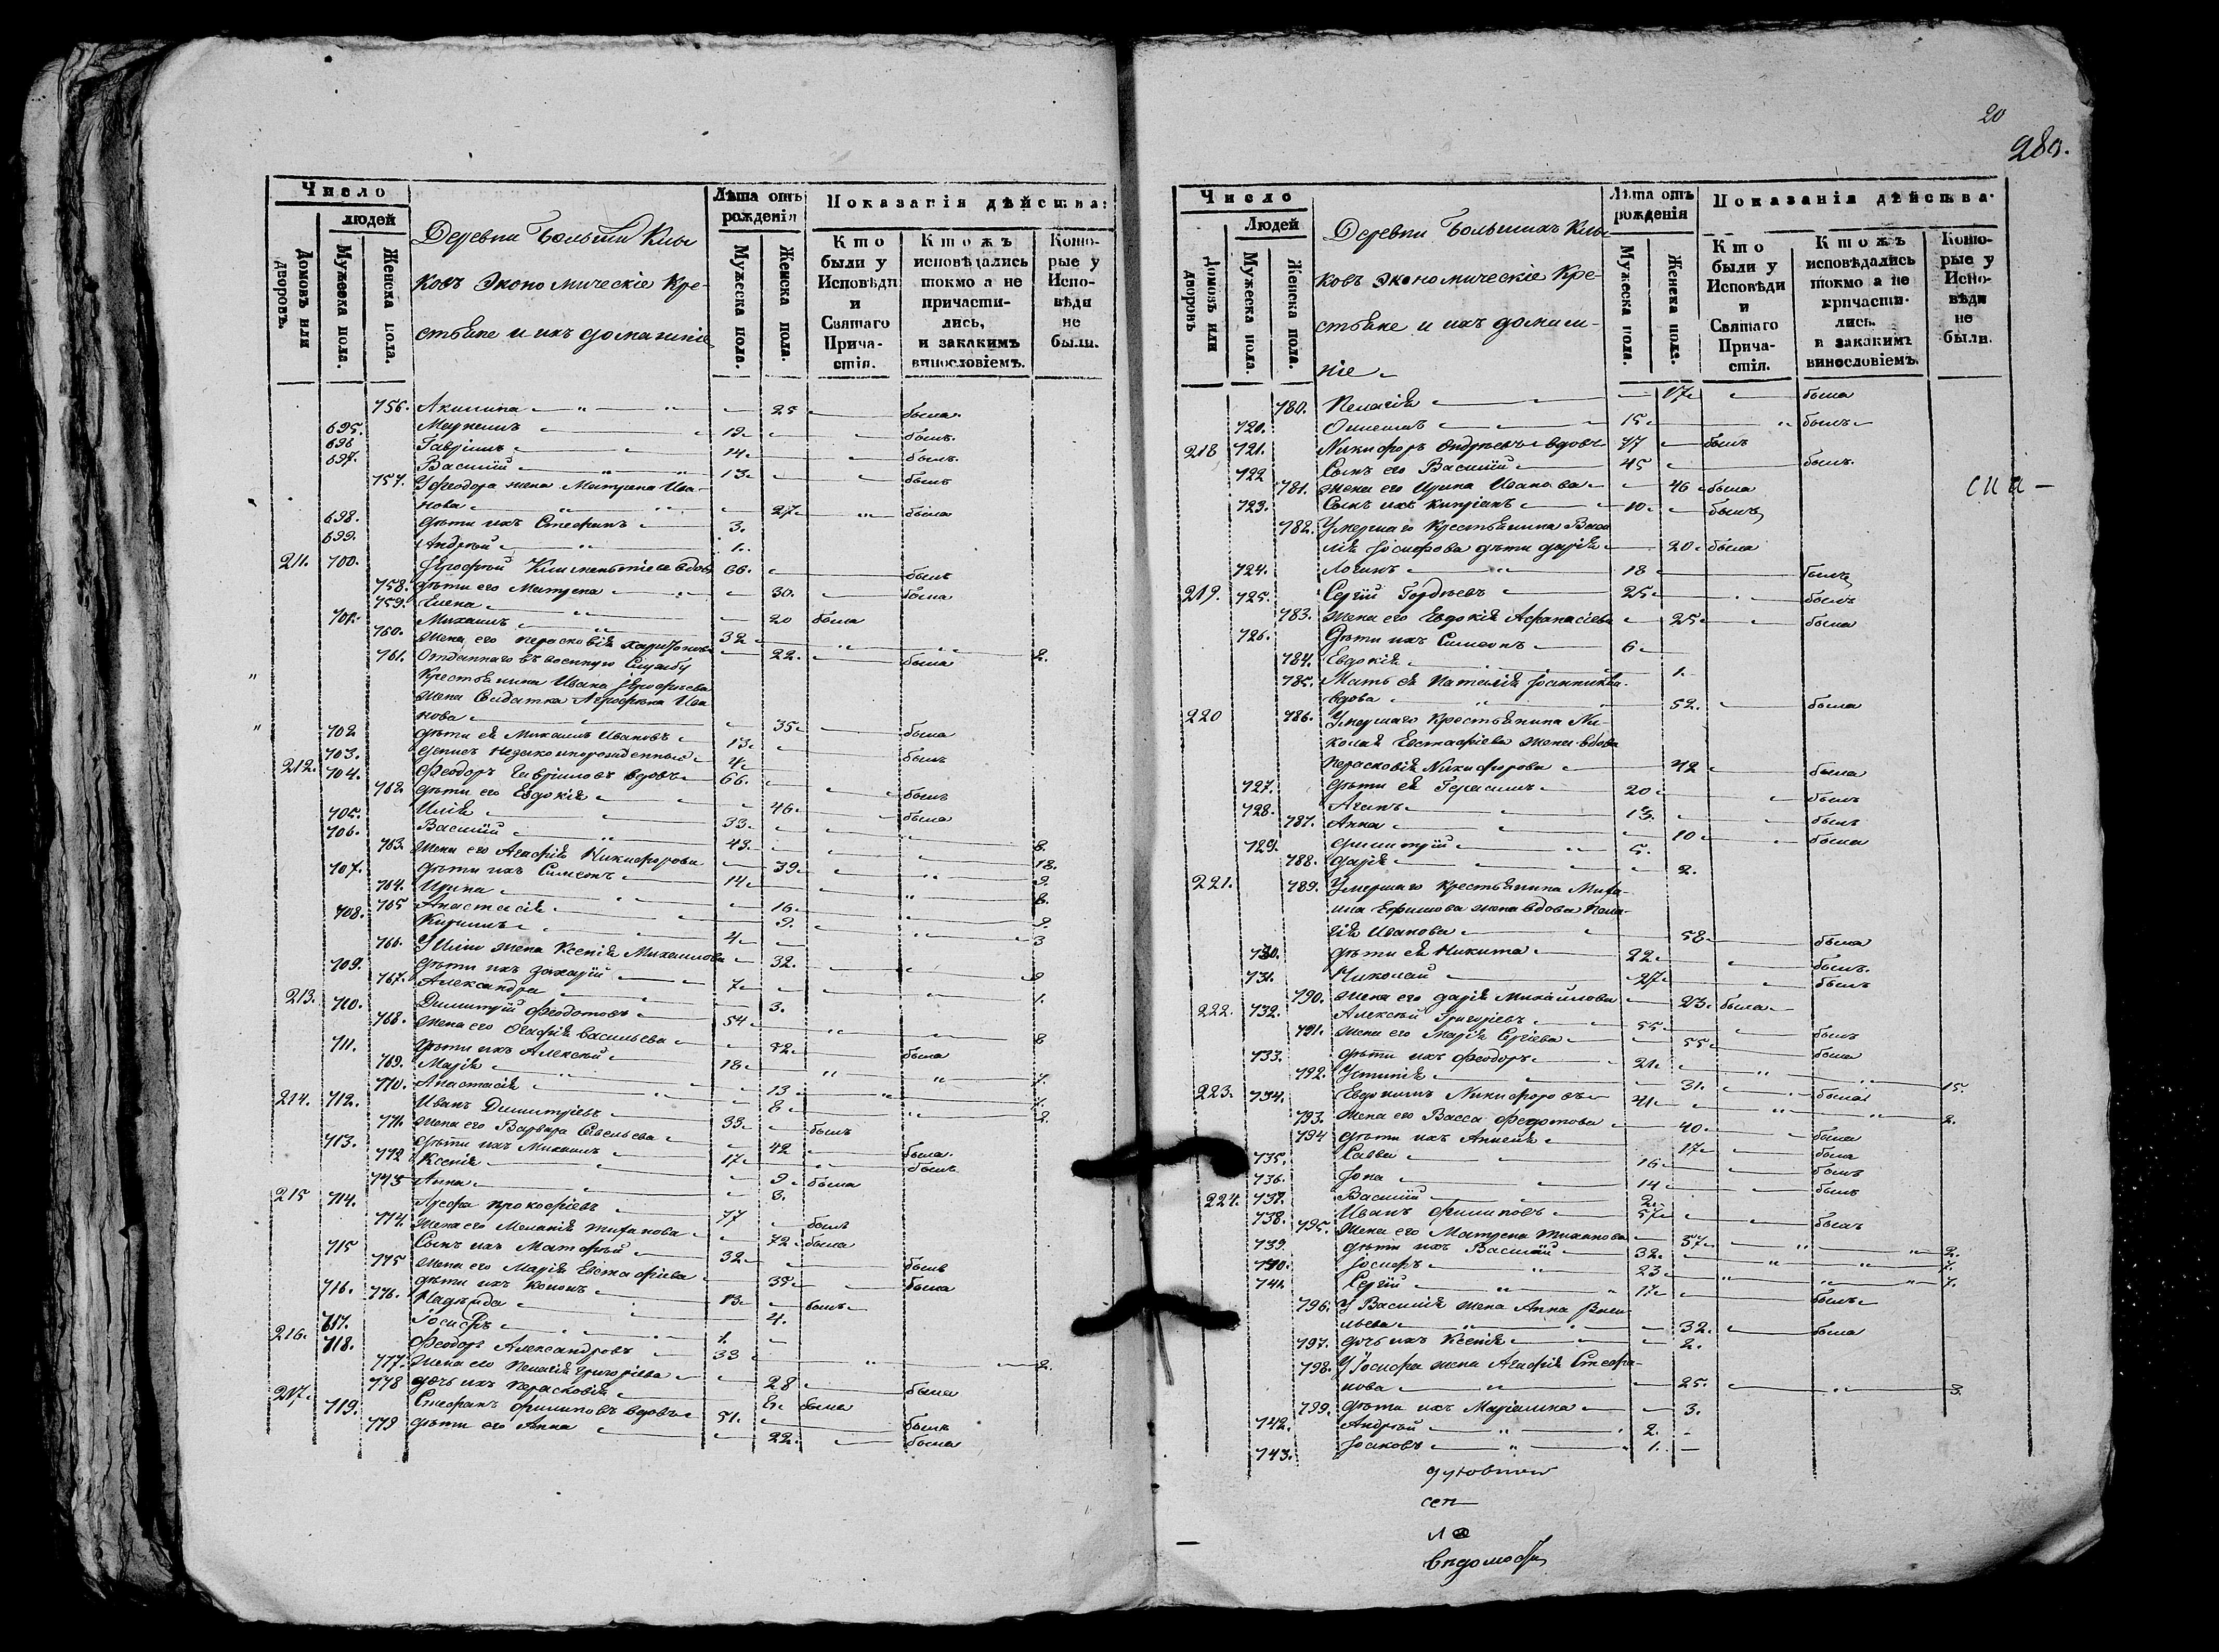 Число
людей
Домовъ или дворовъ.
Мужеска пола.
Женска пола.
Деревни Большия Клы-
ковъ экономическіе Кре-
стьяне и ихъ домашніе
Лѣта отъ рожденія
Мужеска пола.
Женска пола.
Показанія дѣйства:
Кто были у Исповѣди и Святаго Причастія.
Ктожъ исповѣдались токмо а не причастились, и закакимъ винословіемъ.
Которые у Исповѣди не были.
756. Акилина 25 была
695. 19 былъ
696 Гавріилъ 14 былъ
697. Василий 13 былъ
757. У Феодора жена Матрена Ива-
нова 27 была
698. дѣти ихъ Стефанъ 3.
699. Андрей 1.
211. 700. Ерофей Климентіевъ вдовъ 66. былъ
758. дѣти его Матрена 30. была
759. Елена 20 была
701. Михаилъ 32 2.
760. Жена его Перасковія Харитонова 22. была
761. Отданнаго въ военную Службу
Крестьянина Ивана Ерофеева
жена Солдатка Агрофена Ива-
нова 35 была
702 дѣти ея Михаилъ Ивановъ 13 былъ
703. Денисъ Незаконнорожденный 4
212. 704. Феодоръ Гавріиловъ вдовъ 66. былъ
762. дѣти его Евдокія 46. была
705. Илія 33 8.
706. Василий 43. 18.
763. Жена его Агафія Никифорова 39 9
707. дѣти ихъ Симеонъ 14 8.
764. Ирина 16 9.
765 Анастасія 9. 3
708. Кирилъ 4
766. У Иліи жена Ксенія Михаилова 32. 9
709. дѣти ихъ Захарій 7 1.
767. Александра 3.
213. 710. Димитрій Федотовъ 54 8
768. Жена его Агафія Васильева 52 была
711. дѣти ихъ Алексѣй 18 7.
769. Марія 13 1.
770. Анастасія 8 2.
214. 712. Иванъ Димитріевъ 33 былъ
771. Жена его Варвара Савельева 42 была
713. дѣти ихъ Михаилъ 17 былъ
772 Ксенія 9 была
773 Анна 3.
215 714. Прокофіевъ 77 былъ
774. Жена его Меланія 72 была
715 Сынъ ихъ Матфѣй 32 былъ
775 Жена его Марія Евстафіева 35 была
716. дѣти ихъ Кононъ 13 былъ
776. Надежда 4.
717. Іосифъ 1.
216. 718. Феодоръ Александровъ 33 2.
777. Жена его Пелагія Григоріева 28 была
778 дочь ихъ Перасковія 8 была
217. 719. Стефанъ Филиповъ вдовъ 51. былъ
779 дѣти его Анна 22. была
20
280.
Число
Людей
Домовъ или дворовъ
Мужеска пола.
Женска пола.
Деревни Большихъ Клы-
ковъ экономическіе Кре-
стьяне и ихъ домаш-
ніе
Лѣта отъ рожденія
Мужеска пола.
Женска пола.
Показанія дѣйства.
Кто были у Исповѣди и Святаго Причастія.
Ктожъ исповѣдались токмо а не причастились. и закакимъ винословіемъ.
Которые у Исповѣди не были.
780. Пелагія 17 была
720. 15 былъ
218 721. Никифоръ Андреевъ вдовъ 77 былъ
722 Сынъ его Василий 45 былъ
781. Жена его Ирина Иванова 46 была
723. Сынъ ихъ Кипріанъ 10 былъ
782. Умершаго Крестьянина Васи-
лія Іосифова дѣти Дарія 20 была
724. Логинъ 18 былъ
219. 725. Сергій Гордѣевъ 25 былъ
783. Жена его Евдокія Афанасіева 25 была
726. Дѣти ихъ Симеонъ 6
784. Евдокія 1.
785. Мать ея Наталія
вдова 52. была
220 786. Умершаго Крестьянина Ни-
колая Евстафіева жена вдова
Перасковія Никифорова 42 была
727. дѣти ея Герасимъ 20 былъ
728. Агапъ 13. былъ
787. Анна 10 была
729. Димитрій 5.
788. Дарія 2.
221. 789. Умершаго крестьянина Миха-
ила Ефимова жена вдова Пела-
гія Иванова 58 была
730. дѣти ея Никита 22 былъ.
731. Николай 27 былъ
790. Жена его Дарія Михайлова 23. была
222. 732. Алексѣй Григоріевъ 55 былъ
791. Жена его Марія Сергіева 55 была
733. дѣти ихъ Феодоръ 21 15.
792. Устинія 31. была
223. 734. Никифоровъ 41 2.
793. Жена его Васса Федотова 40 была
794 дѣти ихъ 17 была
735. Савва 16 былъ
736. Іона 14 былъ
737. Василий 2
224. 738. Иванъ Филиповъ 57 былъ
795. Жена его Матрена Тиханова 57 2.
739. дѣти ихъ Василий 32. 7.
740. Іосифъ 23 7.
741. Сергій 17 былъ
796. У Василія жена Анна Васи-
льева 32. была
797. дочь ихъ Ксенія 2.
798. У Іосифа жена Агафія Стефа-
нова 25. 3.
799. дѣти ихъ Маріамна 3.
742. Андрей 2.
743. Іаковъ 1.
ведомость